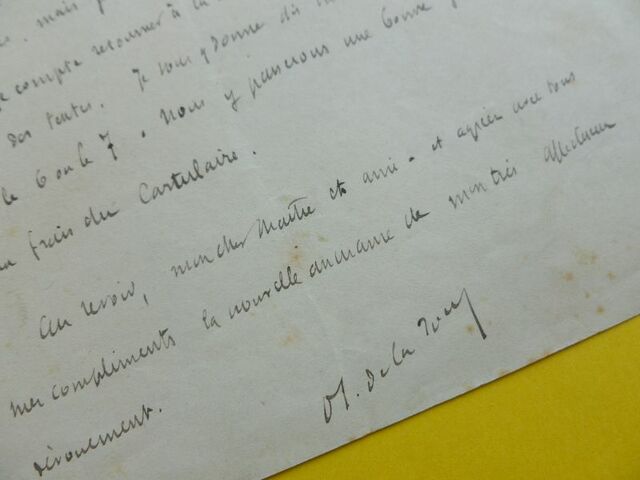 mais
compte retourner à la
des tentes. Je vous y donne dix
le 6 ou le 7. Nous y passerons une bonne
frais du Cartulaire.
Au revoir, mon cher Maître et ami - et agréez avec tous
mes compliments la nouvelle assurance de mon très affectueux
dévouement.
de la Tour